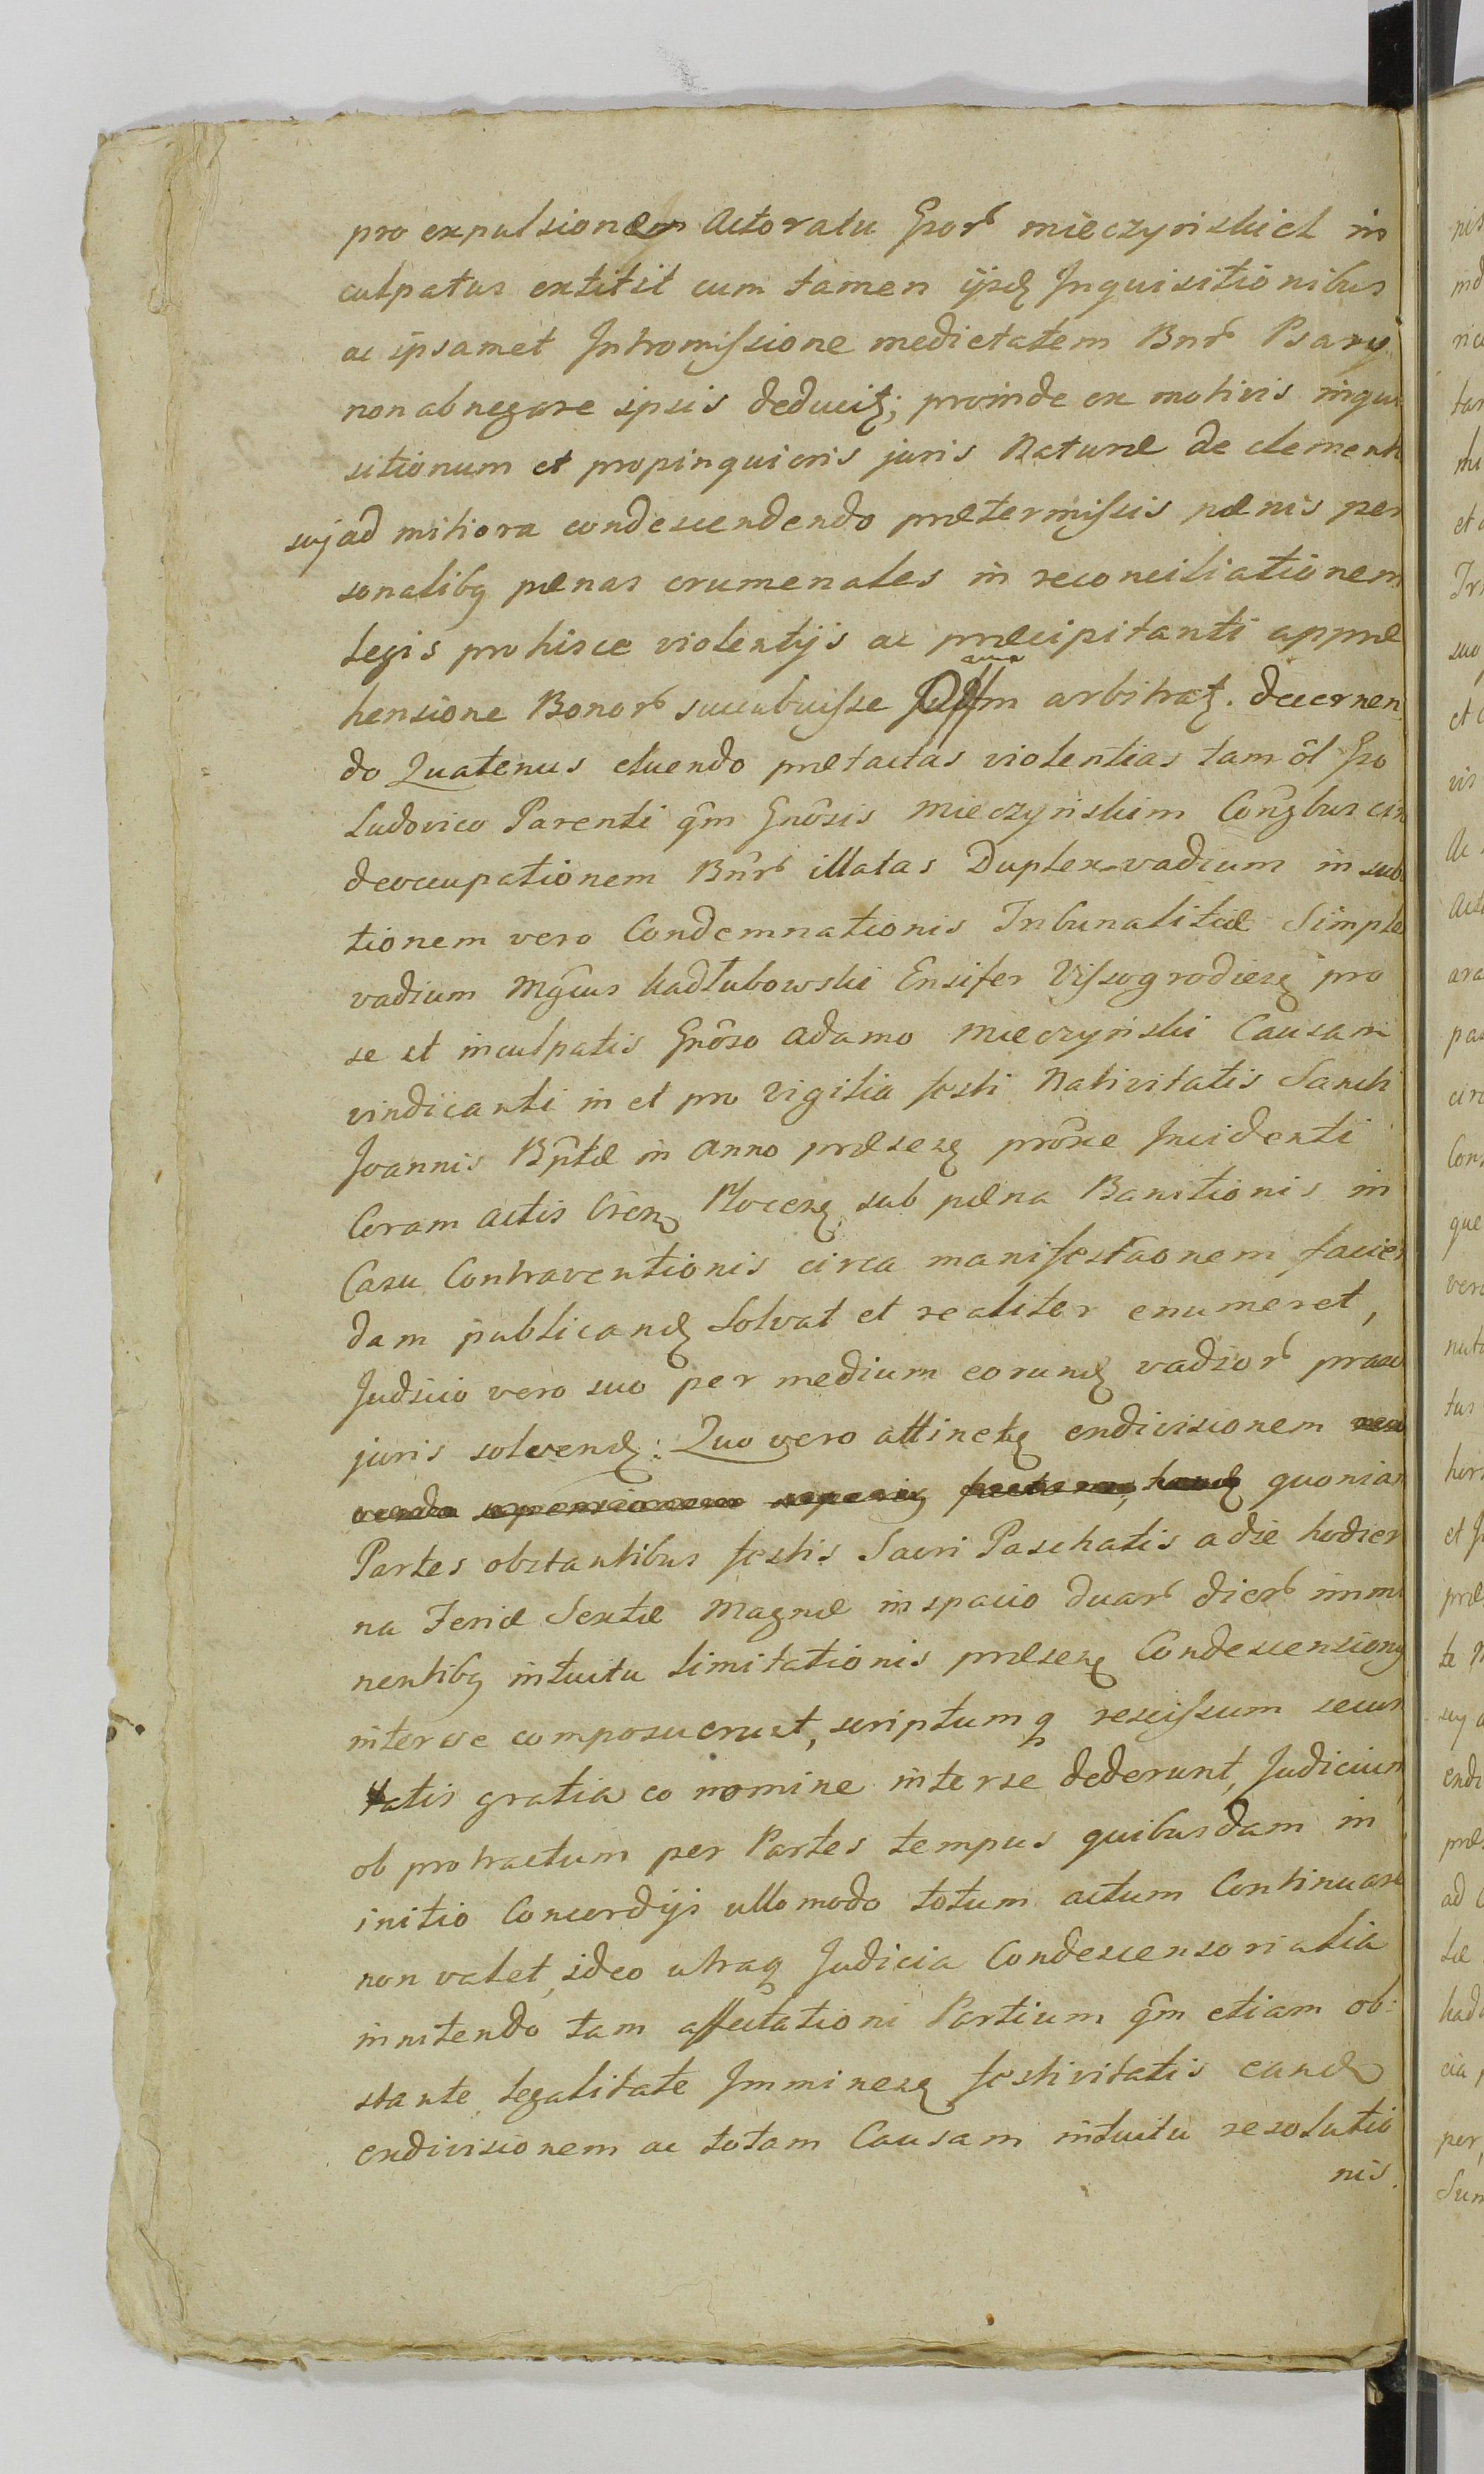 pro expulsionem Actoratu Gror mieczynskich in
culpatus extitit cum tamen ijsd Inquisitionibus
ac ipsamet Intromissione medietatem Bnr Psary
non abnegare ipsis deducit; proinde ex motivis inqui
sitionum et propinquioris juris Naturæ de clementi
suj ad mitiora condescendendo prætermissis pænis per
sonalibq pænas crumenales in reconciliationem
legis pro hisce violentijs ac præcipitanti appræ
hensione Bonor succubuisse arbitrat. decernen
do Quatenus eluendo prætactas violentias tam ol Gro
Ludovico Parenti qm Gnosis Mieczynskim Congbus
deoccupationem Bnr illatas Duplex vadium in
tionem vero Condemnationis Tribunalitiæ Simplex
vadium Mgcus Kadłubowski Ensifer Vissogrodien pro
se et inculpatis Gnoso Adamo Mieczynski Causam
vindicanti in et pro Vigilia festi Nativitatis Sancti
Joannis Bptæ in Anno præsen proxe Incidenti
Coram Actis Plocen sub pæna Bannitionis in
Casu Contraventionis circa manifestaonem facien
dam publicand Solvat et realiter enumeret,
Judicio vero suo per medium eorund vadior
juris solvend: Quo vero attinet exdivisionem
quoniam
Partes obstantibus festis Sacri Paschatis a die hodier
na Feriæ Sextæ Magnæ in spacio duar dier immi
nentibq intuitu limitationis præsen Condescension
inter se composuerunt, scriptumq rescissum securi
tatis gratia eo nomine inter se dederunt, Judicium
ob protractum per Partes tempus quibusdam in
initio Concordijs ullo modo totum actum Continuare
non valet, ideo utraq Judicia Condescensorialia
innitendo tam affectationi Partium qm etiam ob:
stante legalitate Imminen festivitatis eand
exdivisionem ac totam Causam intuitu resolutio
nis